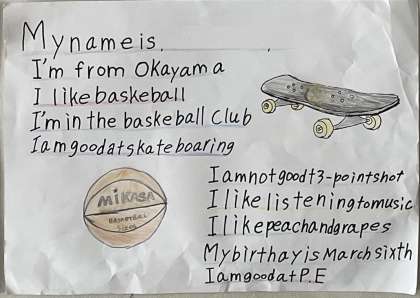 My name is.
I'm from Okayama
I like baskeball
I'm in the baskeball Club
Iamgoodatskateboaring
MIKASA
BASKETBALL
Iamnotgoodt3-pointshot
I like listeningtomusic
I likepeachandgrapes
MybirthayisMarchsixth
IamgoodatP.E